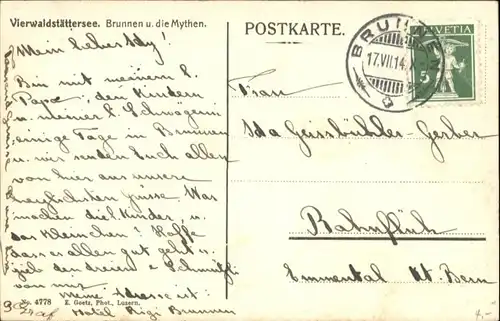 Vierwaldstättersee. Brunnen u. die Mythen.
POSTKARTE.
BRUNNEN
17.VII.14.X
HELVETIA
5
Mein liebes Idy!
Bin mit meinem l.
Papa, den Kindern
u. meiner l. Schwägerin
einige Tage in Brunnen
u. wir senden Euch allen
von hier aus unsere
herzlichsten Grüsse. Was
machen die Kinder, u.
das Kleinchen? Hoffe
dass es allen gut geht u.
gieb den dreien e Schmützli
von mir.
Meine Adresse ist:
Hotel Rigi Brunnen
Frau
Ida Geissbühler-Gerber
Bahnflüh
Emmental Kt. Bern
No. 4778 E. Goetz, Phot., Luzern.
4.-